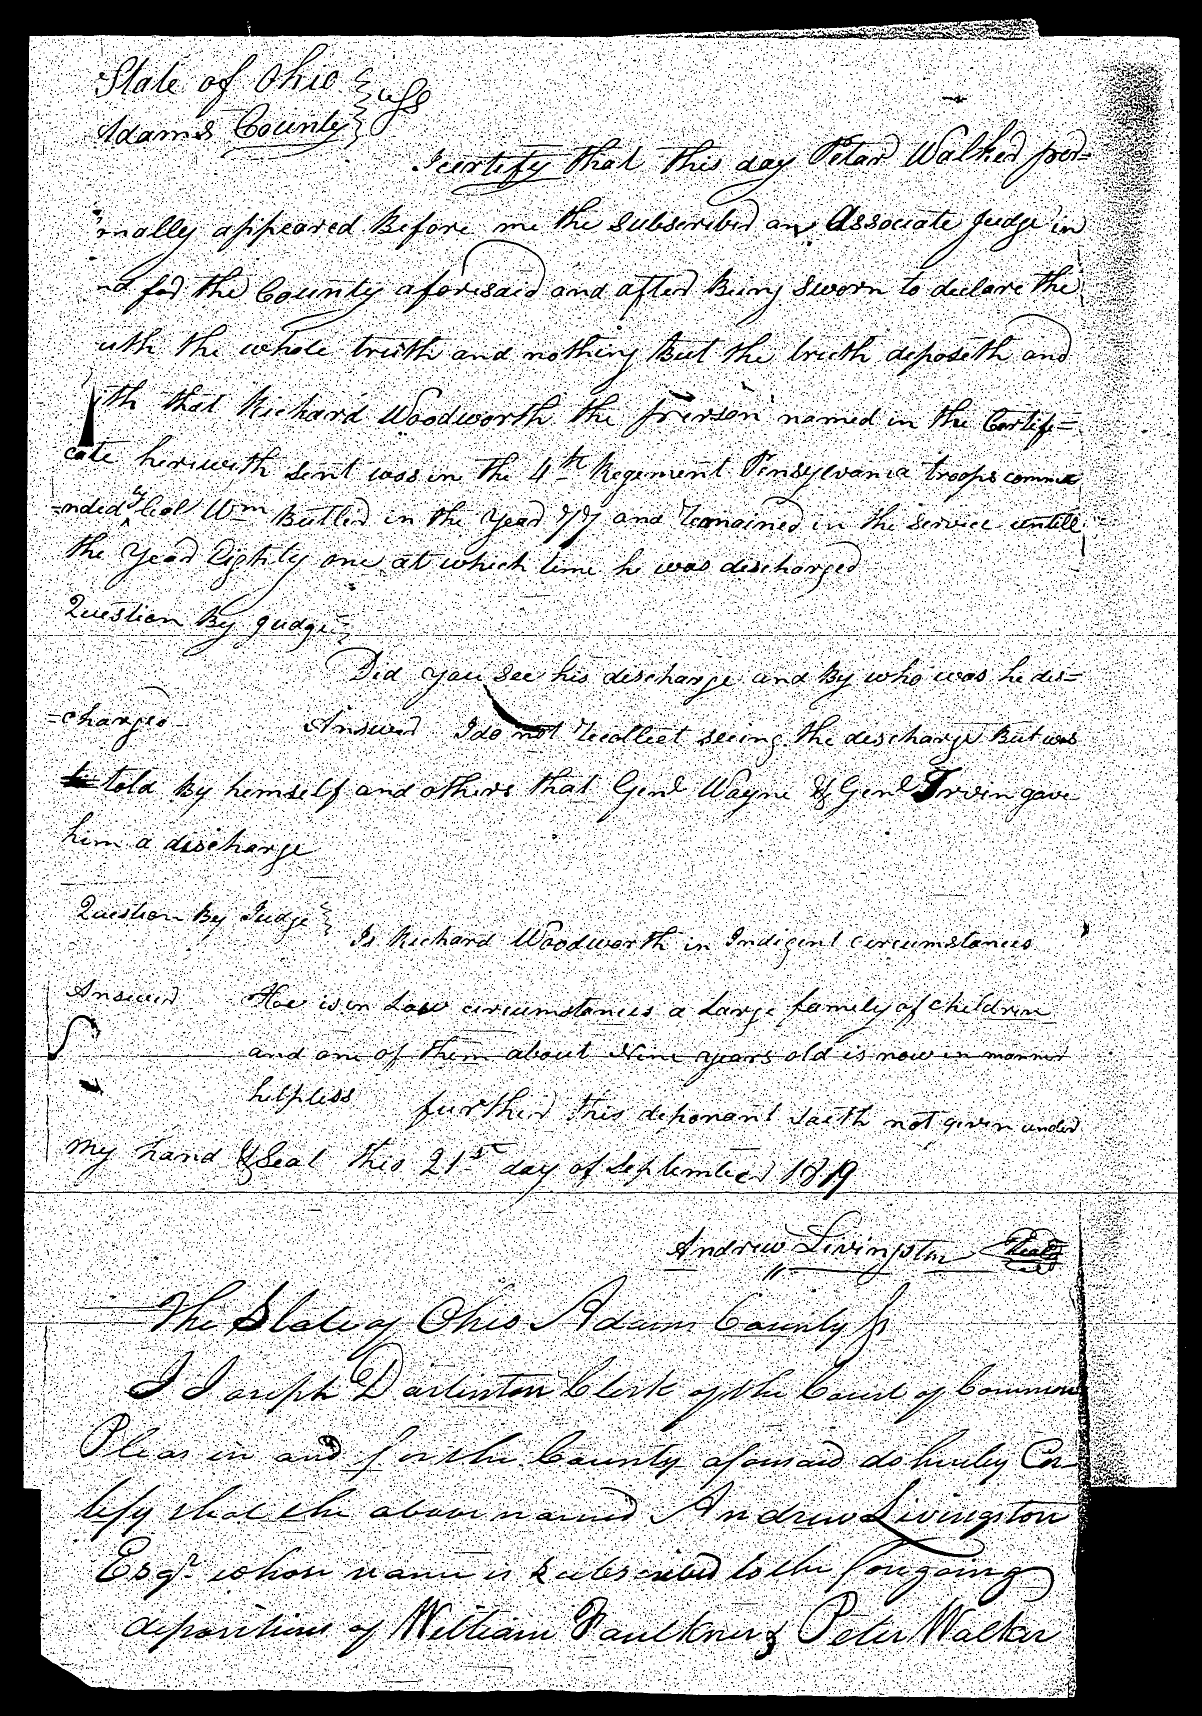 State of Ohio
Adams County ss
I certify that this day Peter Walker per=
onally appeared Before me the subscriber an Associate Judge in
nd for the County aforesaid and after Being sworn to declare the
uth the whole truth and nothing But the truth deposeth and
ith that Richard Woodworth the person named in the Certifi=
cate herewith sent was in the 4th Regement Pensylvania troops comma
=nded by Col Wm Butler in the year 77 and Remained in the service untill
the year Eighty one at which time he was discharged
Question By Judge
Did you see his discharge and By who was he dis=
=charged
Answer I do not Recollect seeing the discharge But was
told By himself and others that Genl Wayne & Genl Irvin gave
him a discharge
Question By Judge
Is Richard Woodworth in Indigent circumstances
Answer He is in Low circumstances a Large family of children
and one of them about Nine years old is now in manner
helpless further this deponant saith not given under
my hand & Seal this 21st day of September 1819
Andrew Livingston Seal
The State of Ohio Adams County ss
I Joseph Darlinton Clerk of the Court of Common
Pleas in and for the County aforesaid do hereby Cer
tify that the above named Andrew Livingston
Esqr. whose name is subscribed to the foregoing
depositions of William Faulkner & Peter Walker